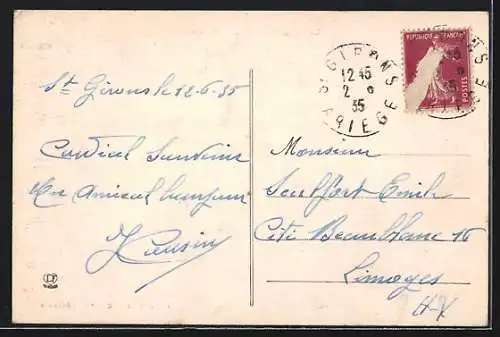 St Girons le 12-6-35
Cordial Souvenir
Mon Amical bonjour
ST GIRONS
12 45
2 6
35
ARIEGE
REPUBLIQUE FRANÇAISE
POSTES
Monsieur
Emile
Cité Beaublanc 16
Limoges
H-V